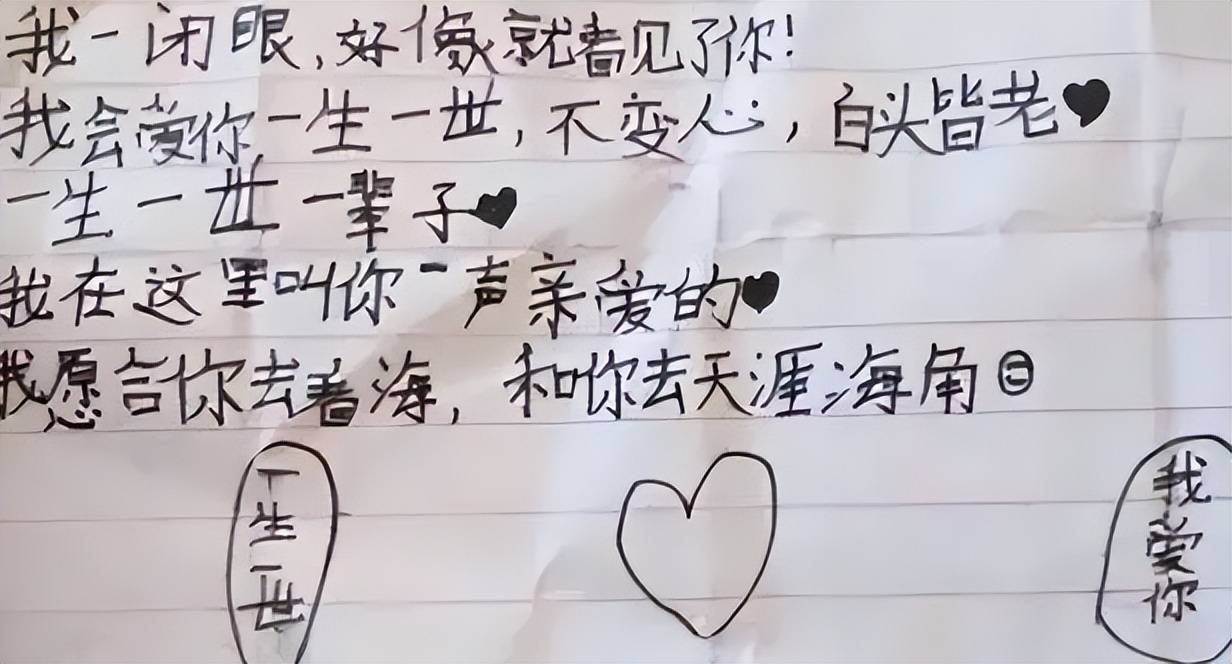 我一闭眼,好像就看见了你!
我会爱你一生一世,不变心,白头皆老♥
一生一世一辈子♥
我在这里叫你一声亲爱的♥
我愿合你去看海,和你去天涯海角
一生一世
我爱你